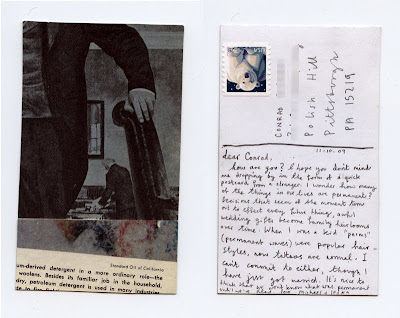 Standard Oil of California
um-derived detergent in a more ordinary role—the
woolens. Besides its familiar job in the household,
dry, petroleum detergent is used in many industries
USA
CONRAD
Polish Hill
Pittsburgh
PA 15219
11.10.09
dear Conrad,
how are you? I hope you don't mind
me dropping by in the form of a quick
postcard from a stranger. I wonder how many
of the things in our lives are permanent?
Decisions that seem of the moment turn
out to effect every future thing, awful
wedding gifts become family heirlooms
over time. When I was a kid "perms"
(permanent waves) were popular hair-
styles, now tattoos are normal. I
can't commit to either, though I
have just got married. It's nice to
think that we don't know what was permanent
until